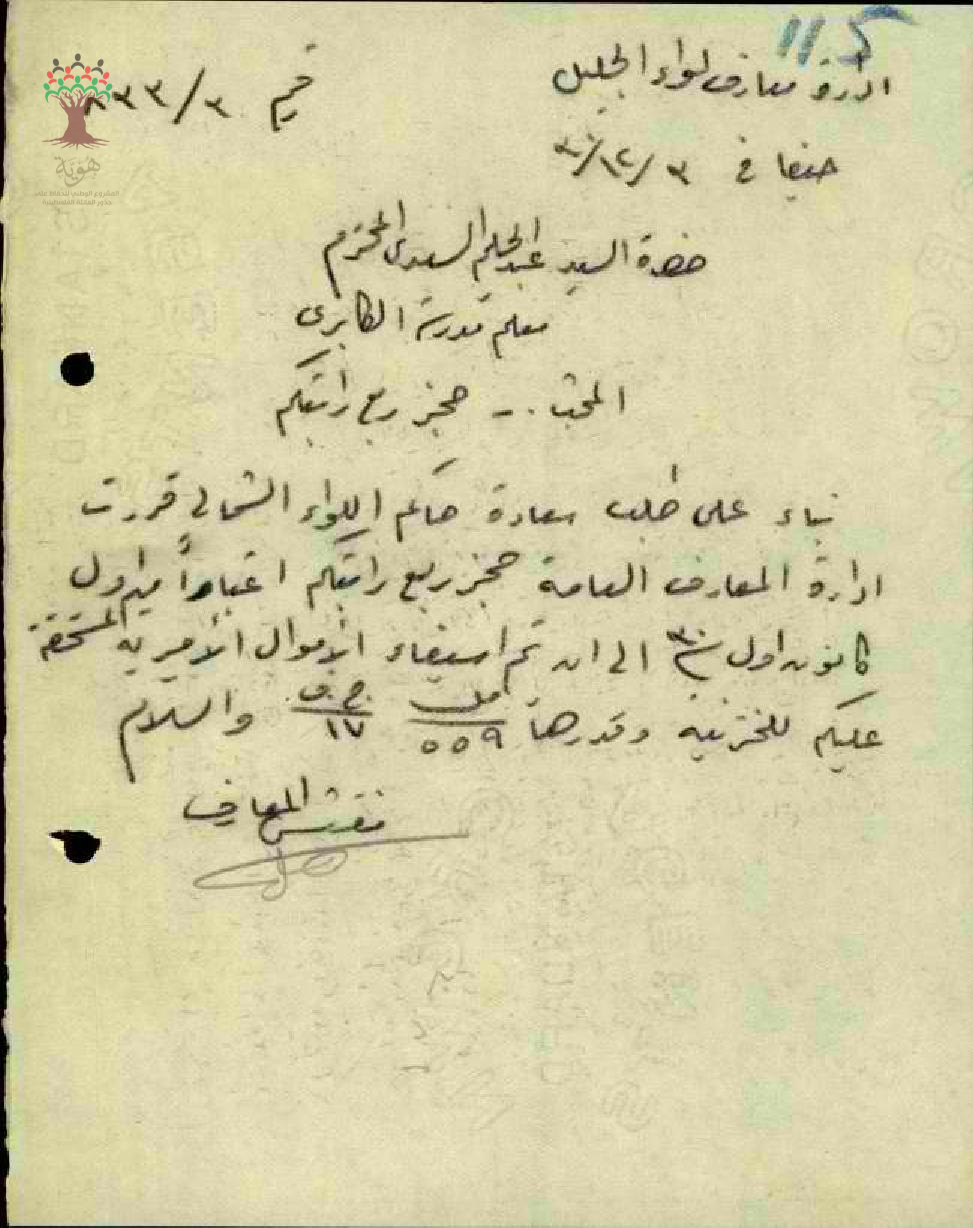 115
ادارة معارف لواء الجليل
حيفا في ٣/١٢/٣٠
حضرة السيد عبد الحليم السعدي المحترم
معلم مدرسة الكابري
المبحث .- حجز ربع راتبكم
بناء على طلب سعادة حاكم اللواء الشمالي قررت
ادارة المعارف العامة حجز ربع راتبكم اعتباراً من اول
كانون اول ٣٠ الى ان تم استيفاء الاموال الاميرية المستحقة
عليكم للخزينة وقدرها ٥٥٩ مل ١٧ ج.ف والسلام
مفتش المعارف
هوية
المشروع الوطني للحفاظ على
جذور العائلة الفلسطينية